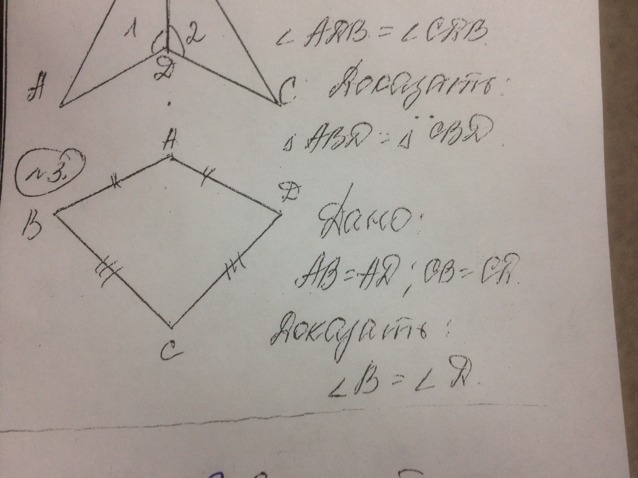 1 2
∠ADB = ∠CDB
A D C
Доказать:
△ABD = △CBD
№3.
A
B D
C
Дано:
AB = AD; CB = CD.
Доказать:
∠B = ∠D.